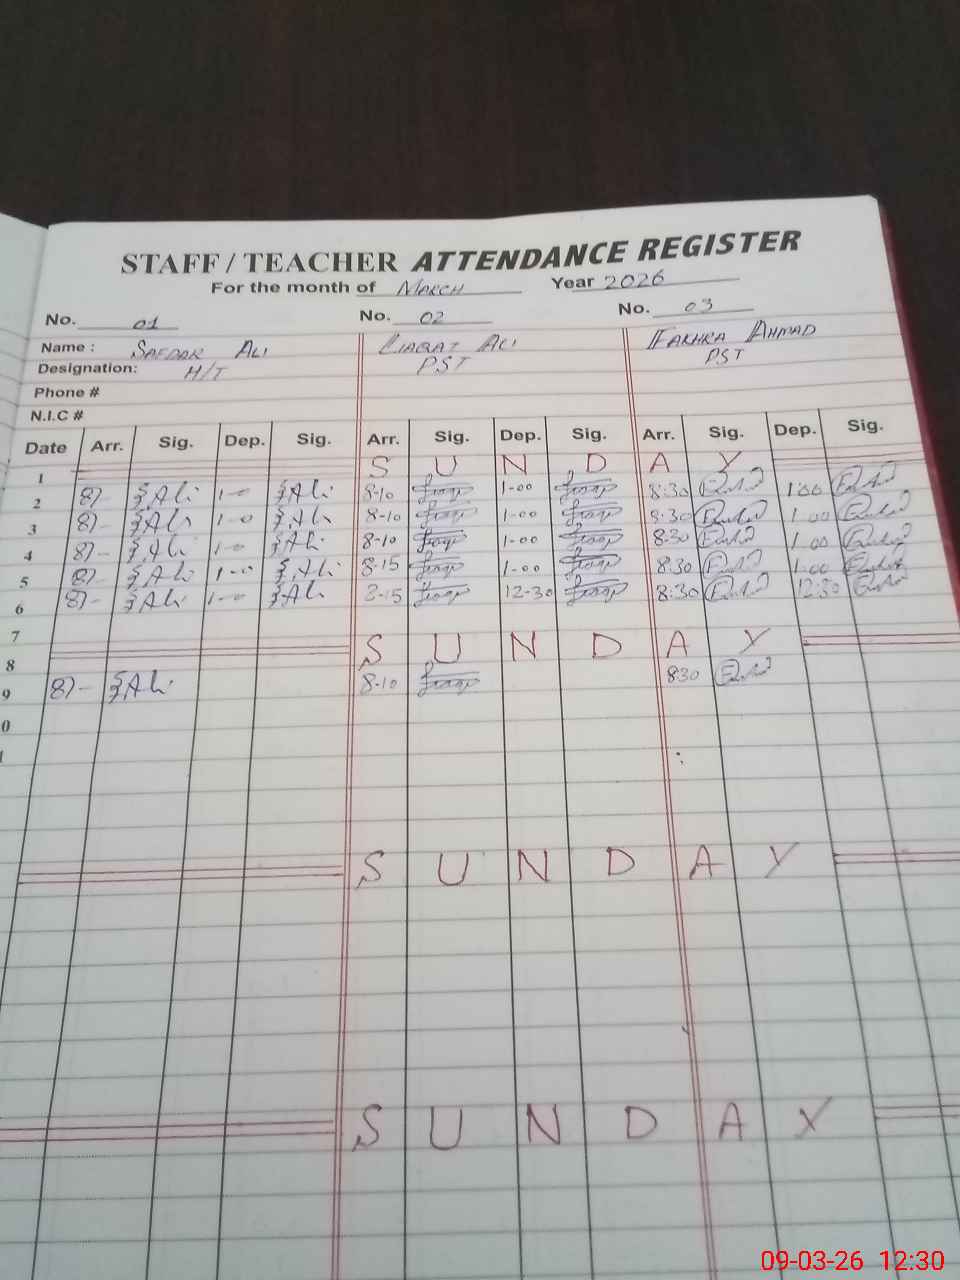 STAFF / TEACHER ATTENDANCE REGISTER
For the month of MARCH Year 2026
No. 01 No. 02 No. 03
Name : SAFDAR ALI LIAQAT ALI FAKHRA AHMAD
Designation: H/T PST PST
Phone #
N.I.C #
Date Arr. Sig. Dep. Sig. Arr. Sig. Dep. Sig. Arr. Sig. Dep. Sig.
1 S U N D A Y
2 8)- Ali 1-0 Ali 8-10 1-00 8:30 1:00
3 8)- Ali 1-0 Ali 8-10 1-00 8:30 1.00
4 8)- Ali 1-0 Ali 8-10 1-00 8:30 1.00
5 8)- Ali 1-0 Ali 8-15 1-00 8:30 1.00
6 8)- Ali 1-0 Ali 8-15 12-30 8:30 12:30
7
8 S U N D A Y
9 8)- Ali 8-10 8:30
0
1
S U N D A Y
S U N D A Y
09-03-26 12:30